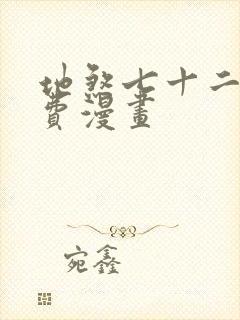 地煞七十二
費漫畫
宛鑫